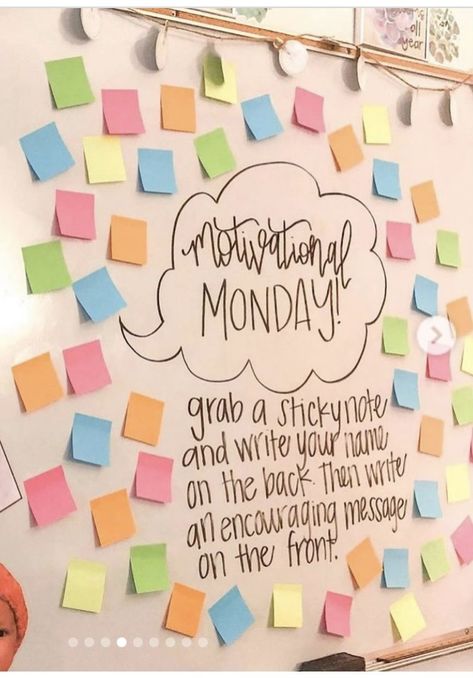 all year
motivational
MONDAY!
grab a sticky note
and write your name
on the back. Then write
an encouraging message
on the front.